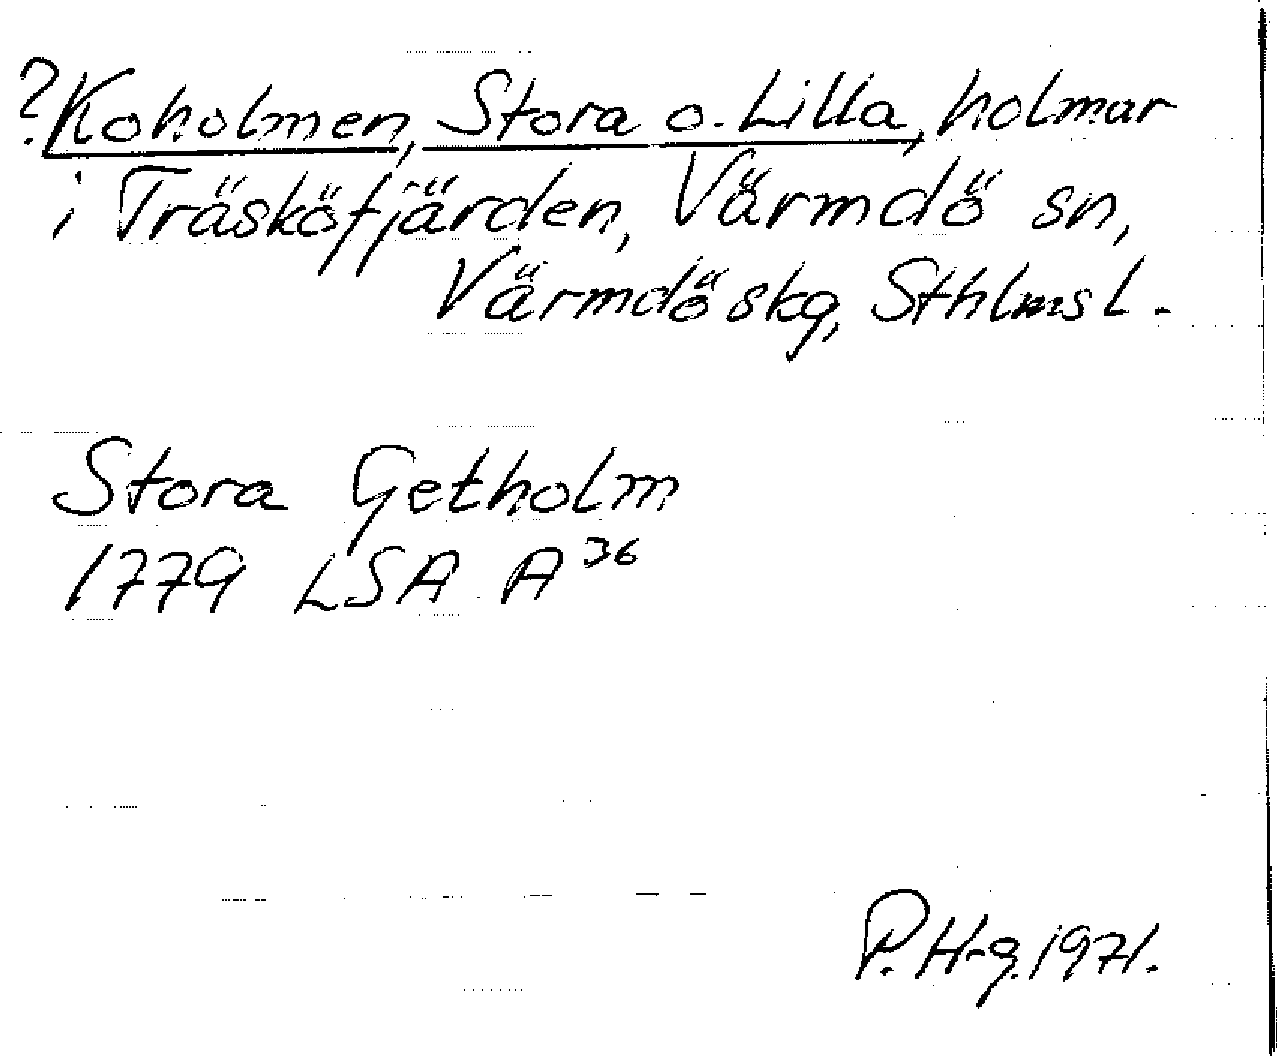 ?Koholmen, Stora o. Lilla, holmar
i Träsköfjärden, Värmdö sn,
Värmdö skg, Sthlms l.
Stora Getholm
1779 LSA A³⁶
P. H-g. 1971.